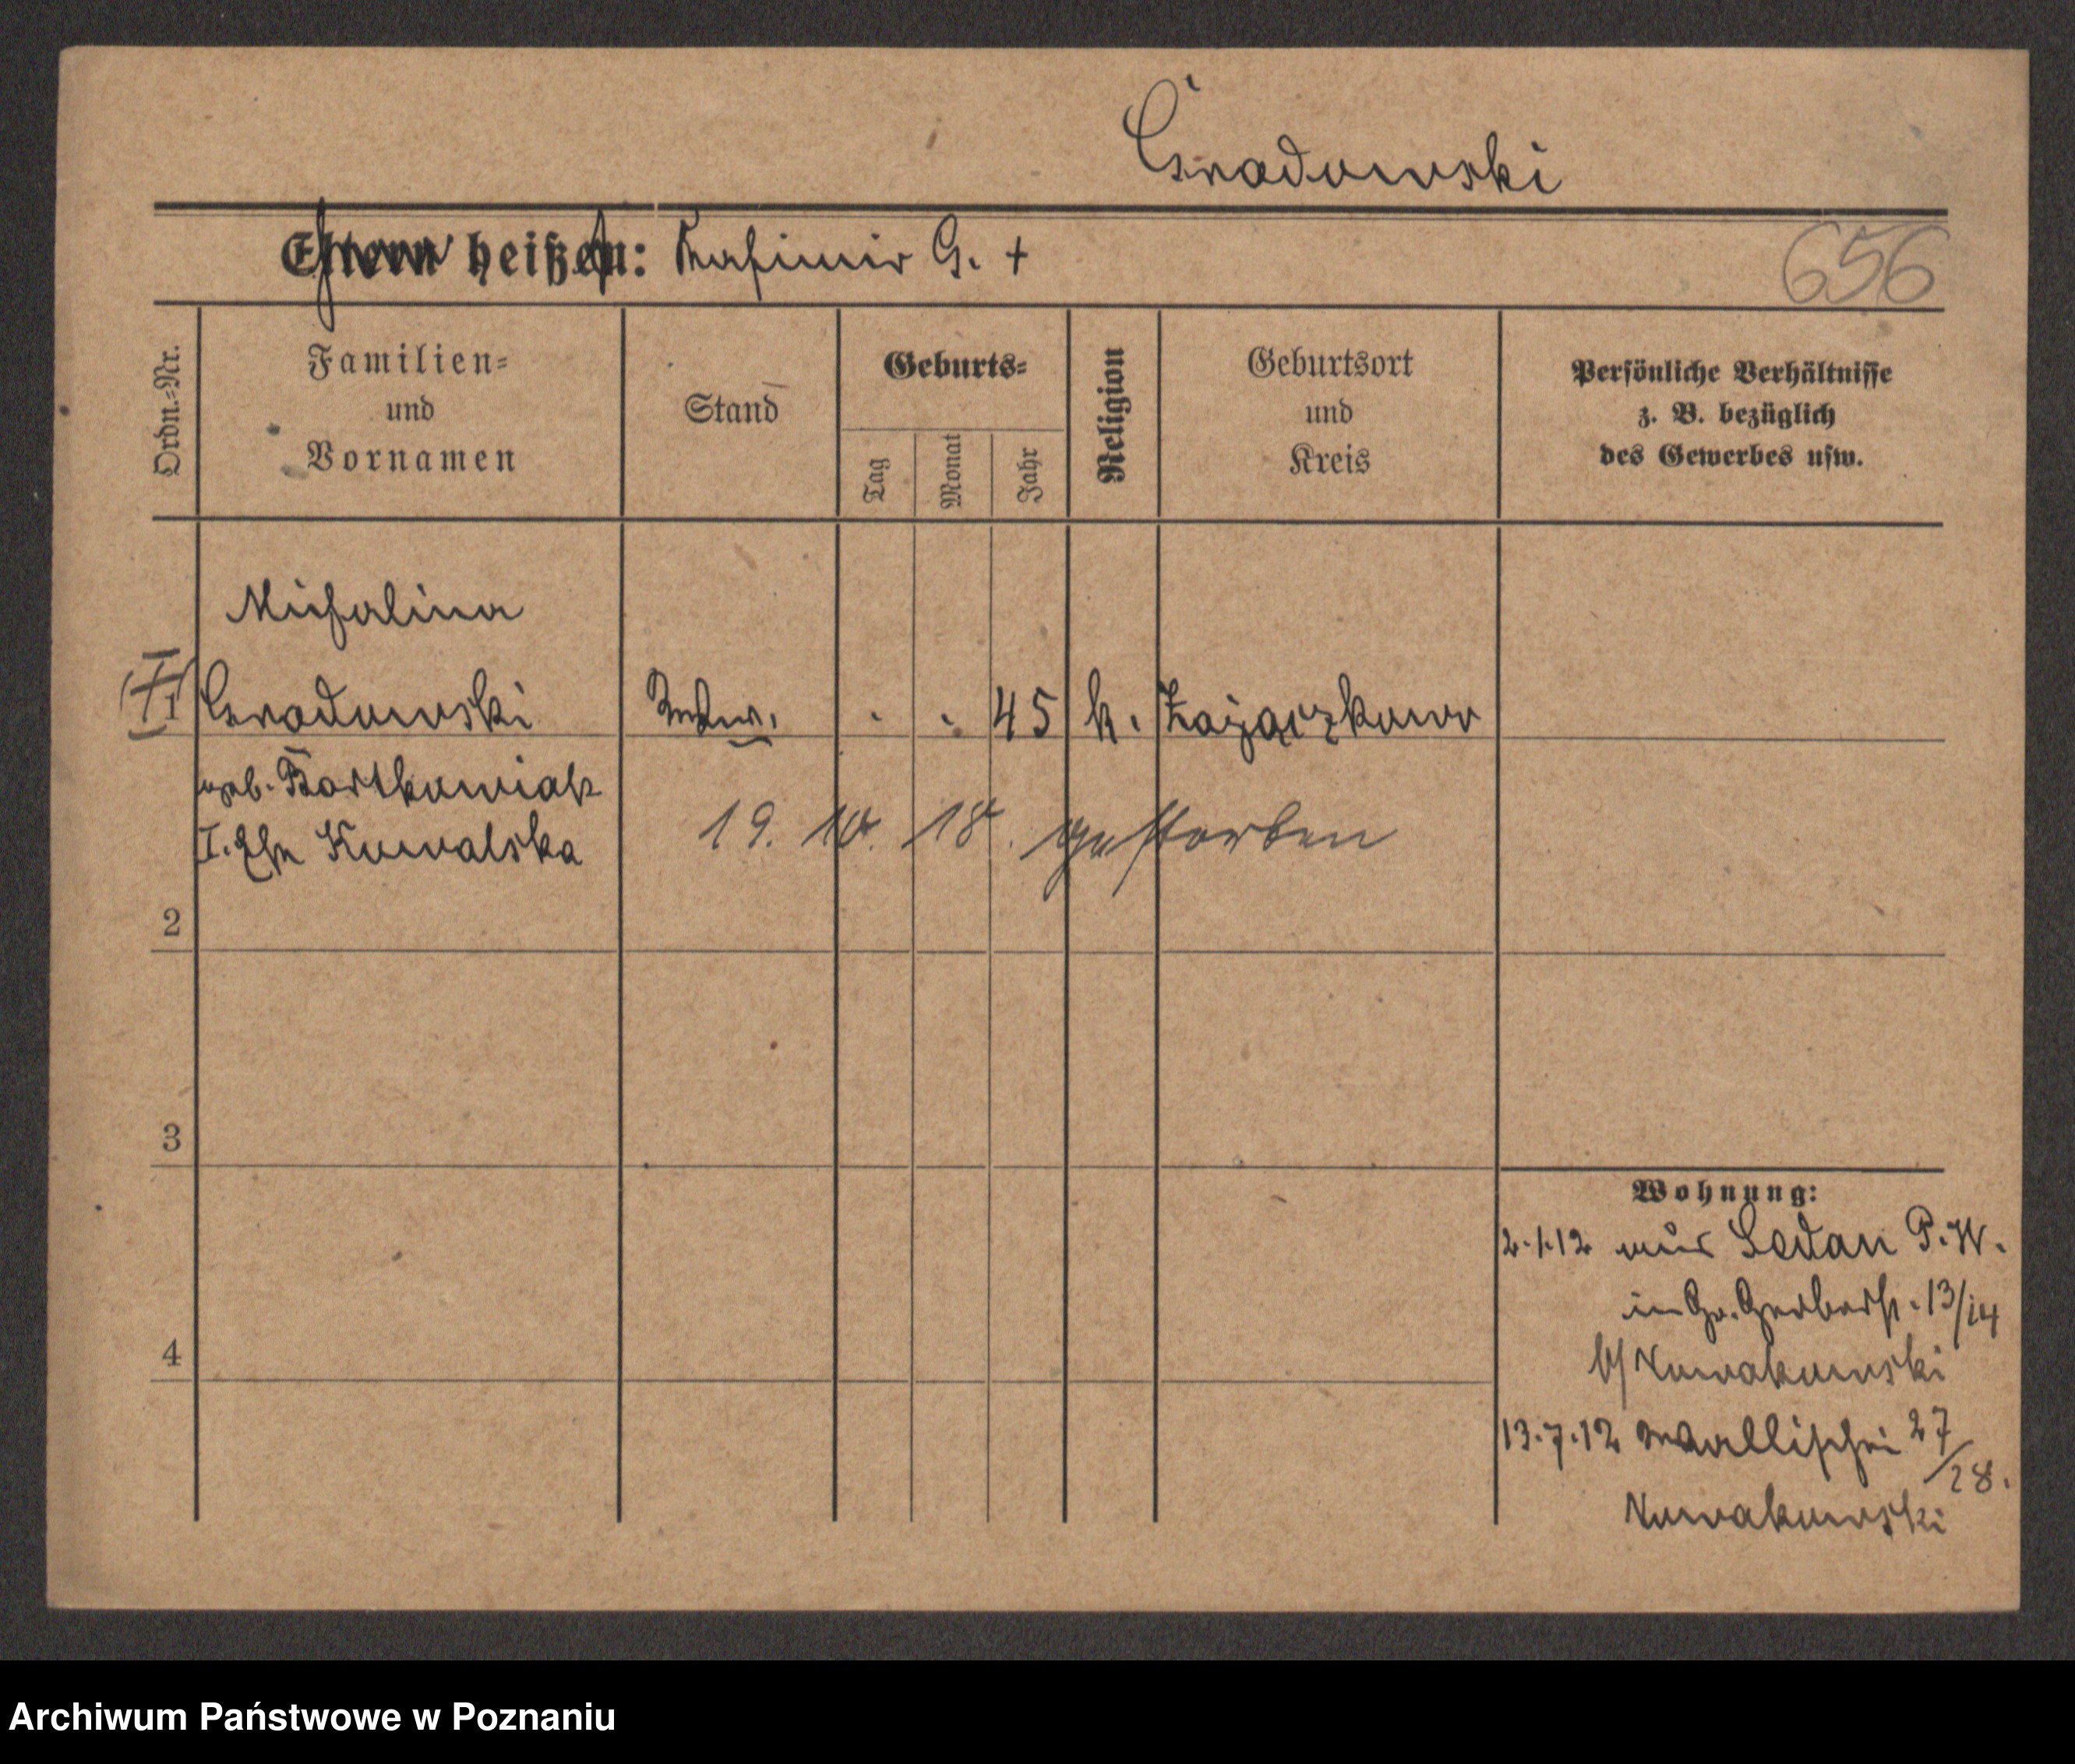 Gradowski
Eltern heißen: Kasimir G. +
656
Ordn.-Nr.
Familien-
und
Vornamen
Stand
Geburts-
Tag
Monat
Jahr
Religion
Geburtsort
und
Kreis
Persönliche Verhältnisse
z. B. bezüglich
des Gewerbes usw.
Michalina
1 Gradowski Witwe. . . 45 k. Zajaczkowo
geb. Bartkowiak
I. Ehe Kowalska
19. 10. 18. gestorben
2
3
4
Wohnung:
2.1.12 aus Sedan P.W.
in Gr. Gerberst. 13/14
b/ Nowakowski
13.7.12 Wallischei 27/28.
Nowakowski
Archiwum Państwowe w Poznaniu